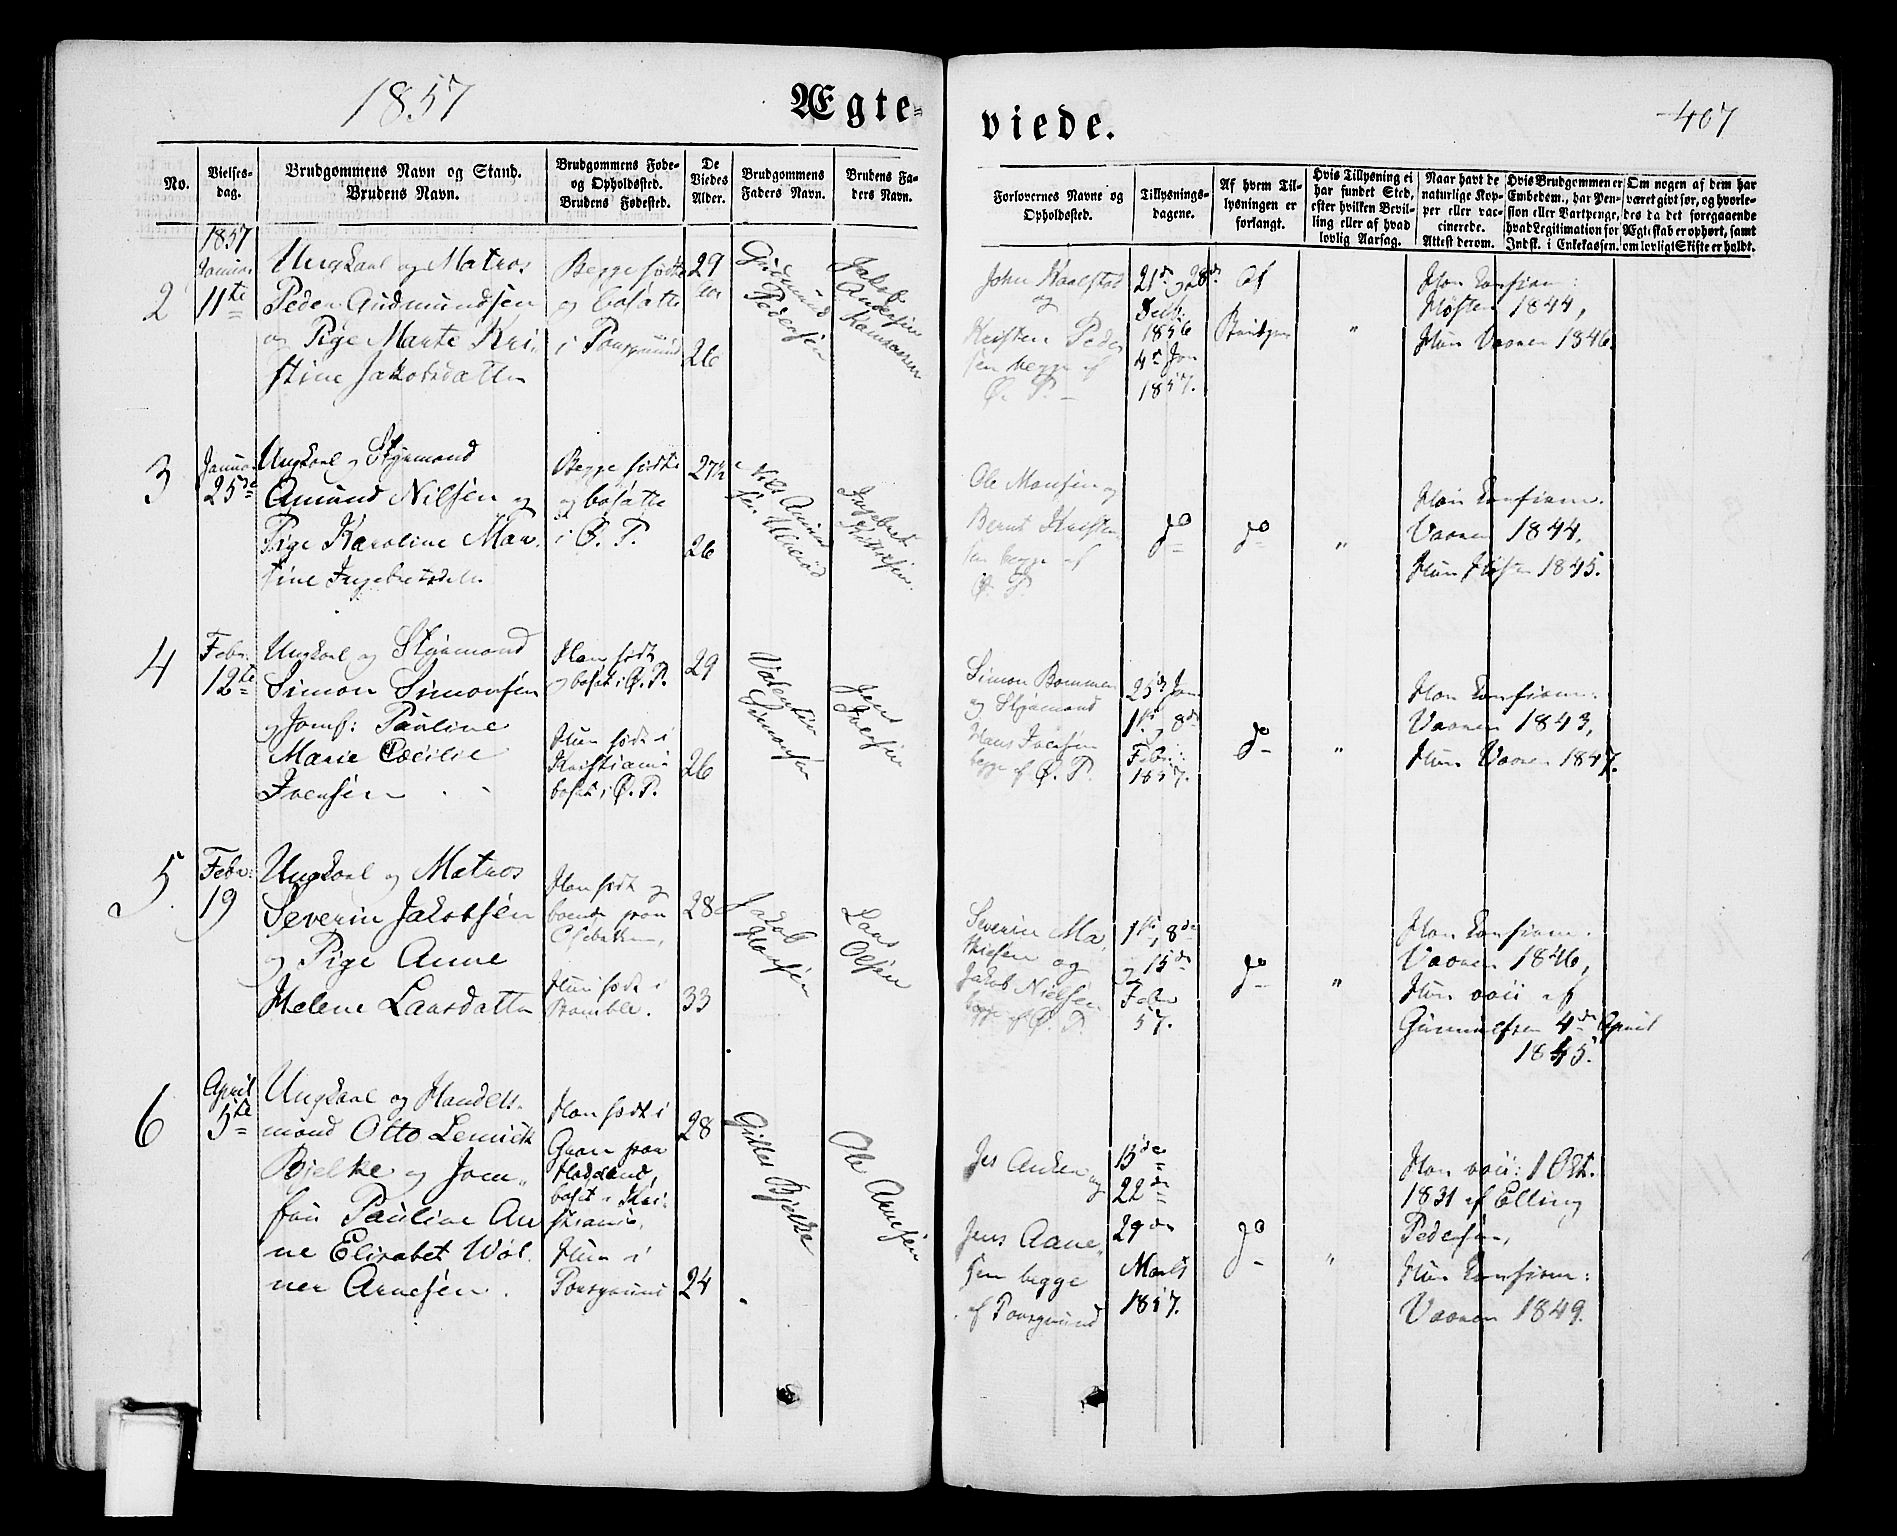 1857
Ægte-
viede.
407
No.
Vielses-
dag.
Brudgommens Navn og Stand.
Brudens Navn.
Brudgommens Føde-
og Opholdssted.
Brudens Fødested.
De
Viedes
Alder.
Brudgommens
Faders Navn.
Brudens Fa-
ders Navn.
Forlovernes Navne og
Opholdssted.
Tillysnings-
dagene.
Af hvem Til-
lysningen er
forlangt.
Hvis Tillysning ei
har fundet Sted,
efter hvilken Bevil-
ling eller af hvad
lovlig Aarsag.
Naar havt de
naturlige Kop-
per eller vac-
cinerede.
Attest derom.
Hvis Brudgommen er
Embedsm., har Pen-
sion eller Vartpenge,
hvad Legitimation for
Indsk. i Enkekassen.
Om nogen af dem har
været gift før, og hvorle-
des da det foregaaende
Ægteskab er ophørt, samt
om lovligt Skifte er holdt.
1857
2
Januar
11te
Ungkarl og Matros
Peder Gudmundsen
og Pige Marte Kri-
stine Jakobsdatter
Begge fødte
og bosatte
i Porsgrund
29
26
Gudmund
Pedersen
Jakob
Andersen
John
og
Kristen Peder
sen begge af
Ø. P.
21de og 28de
1856
4de Jan
1857.
Af
Brudgom
"
Han konfirm:
Høsten 1844,
Hun Vaaren 1846.
3
Januar
25de
Ungkarl og Styrmand
Amund Nilsen og
Pige Karoline Mar-
tine Ingebretsdatter
Begge fødte
og bosatte
i Ø. P.
27½
26
Nils Amund
sen
Ingebret
Ole Monsen og
Bernt Kristen
sen begge af
Ø. P.
do
do
"
Han konfirm.
Vaaren 1844,
Hun Høsten 1845.
4
Febr.
12te
Ungkarl og Styrmand
Simon Simonsen
og Jomf: Pauline
Marie Cecilie
Ivensen
Han født
og bosat i Ø. P.
Hun født i
Kristiania
bosat i Ø. P.
29
26
Valentin
Simonsen
Jens
Ivensen
Simon Bommen
og Styrmand
Hans Ivensen
begge af Ø. P.
25de Jan
1ste, 8de
Febr:
1857.
do
"
Han konfirm:
Vaaren 1843,
Hun Vaaren 1847.
5
Febr:
19
Ungkarl og Matros
Severin Jakobsen
og Pige Anne
Helene Larsdatter
Han født og
boende paa
Hun født i
Bamble.
28
33
Jakob
Hansen
Lars
Olsen
Severin Ma
thisen og
Jakob Nielsen
begge af Ø. P.
1ste, 8de
og 15de
Febr
57.
do
"
Han konfirm.
Vaaren 1846,
Hun vacc af
4de April
1845.
6
April
5te
Ungkarl og Handels-
mand Otto
Bjelke og Jom-
fru Pauline An
ne Elisabet Wøl
ner Arnesen.
Han født i
Gran paa
Hadeland,
bosat i Kri-
stiania,
Hun i
Porsgrund
28
24
Gilles Bjelke
Ole Arnesen
Jes Anker og
Jens Aane-
sen begge
af Porsgrund
15de
22de
29de
Marts
1857.
do
"
Han vacc: 1 Okt.
1831 af Elling
Pedersen,
Hun konfirm:
Vaaren 1849.